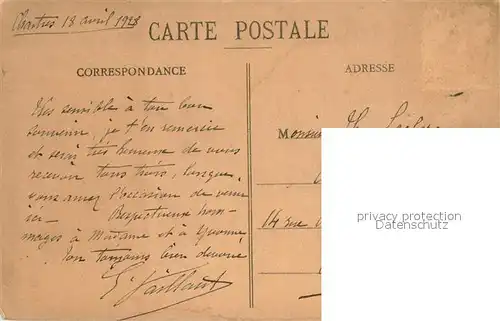 Chartres 18 avril 1928
CARTE POSTALE
CORRESPONDANCE
ADRESSE
Très sensible à ton bon
souvenir, je t'en remercie
et serai très heureux de vous
recevoir tous trois, lorsque
vous aurez l'occasion de venir
ici — Respectueux hom-
mages à Madame et à Yvonne
Ton toujours bien dévoué
Monsieur
14 rue
privacy protection
Datenschutz